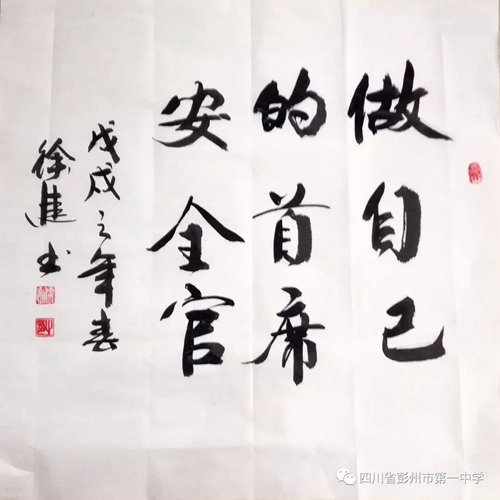 做自己
的首席
安全官
戊戌之年春
徐進书
四川省彭州市第一中学